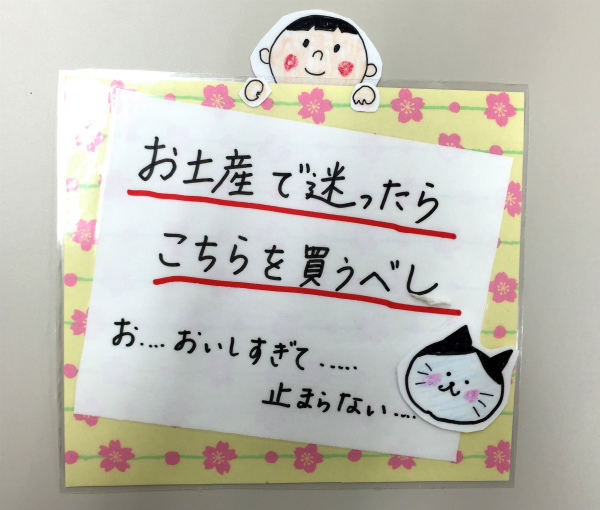 お土産で迷ったら
こちらを買うべし
お....おいしすぎて.....
止まらない....